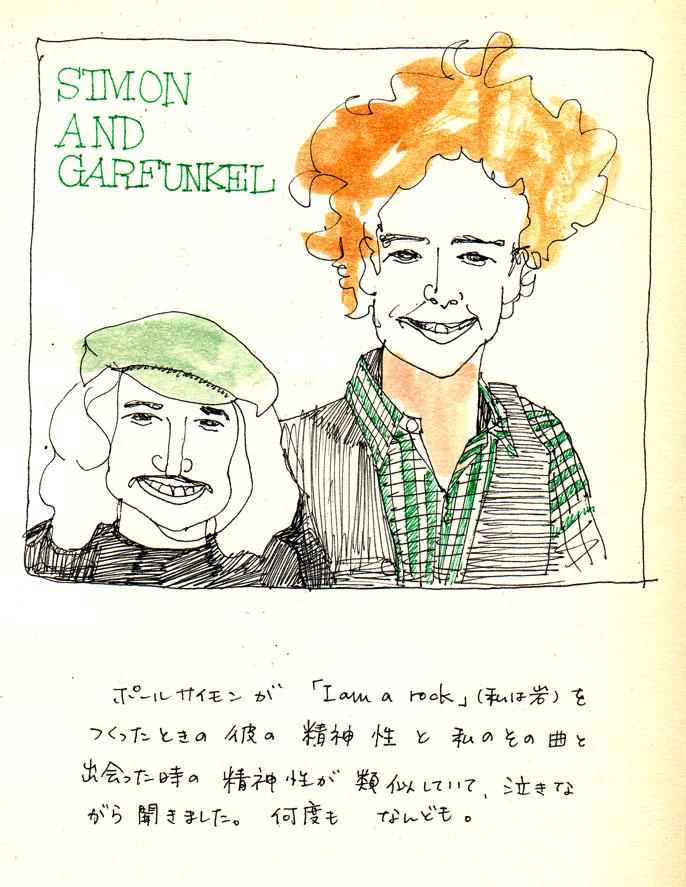 SIMON
AND
GARFUNKEL
ポールサイモンが 「I am a rock」(私は岩)を
つくったときの 彼の 精神性と 私のその曲と
出会った時の 精神性が 類似していて、泣きな
がら 聞きました。 何度も なんども。